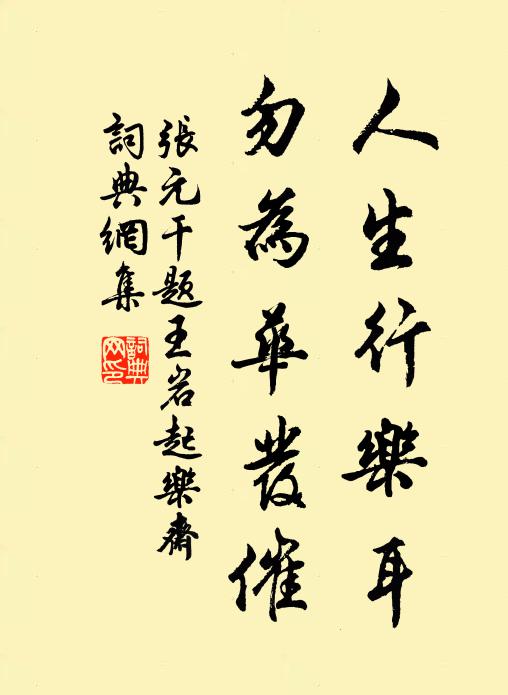 人生行樂耳
勿為華發催
張元干題王岩起樂齋
詞典網集
詞典网印